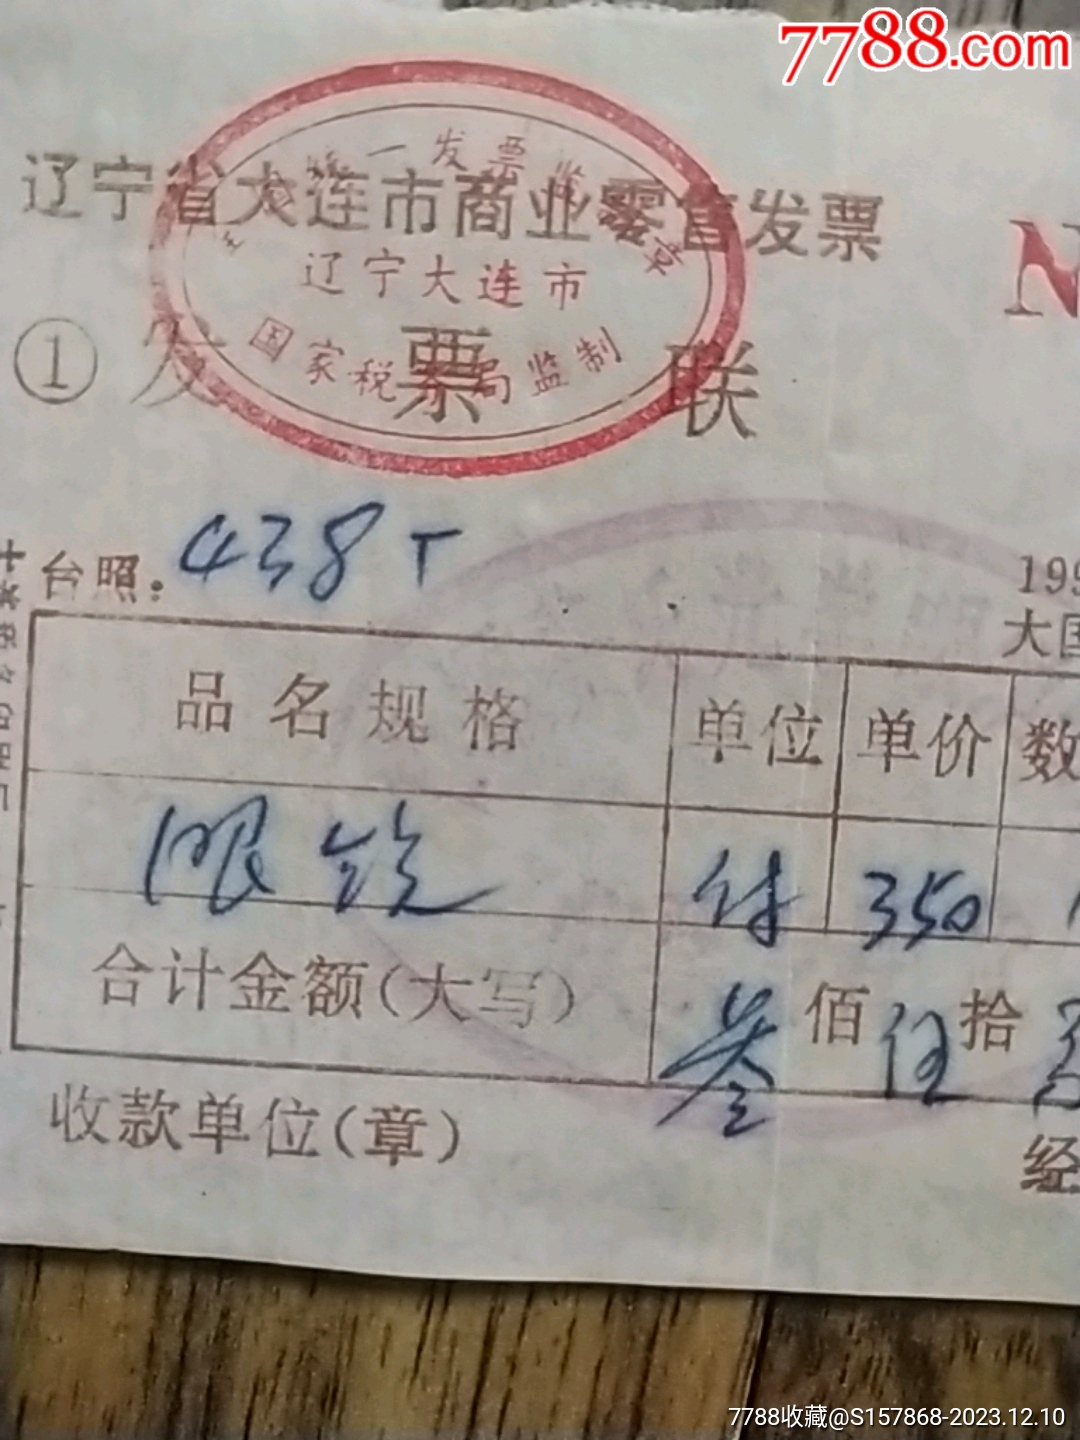 7788.com
辽宁省大连市商业零售发票
统一发票监
辽宁大连市
国家税务局监制
N
①发票联
台照：438T
199
大国
品名规格 单位 单价 数
眼镜 付 350
合计金额(大写) 叁佰伍拾
收款单位(章)
经
7788收藏@S157868-2023.12.10